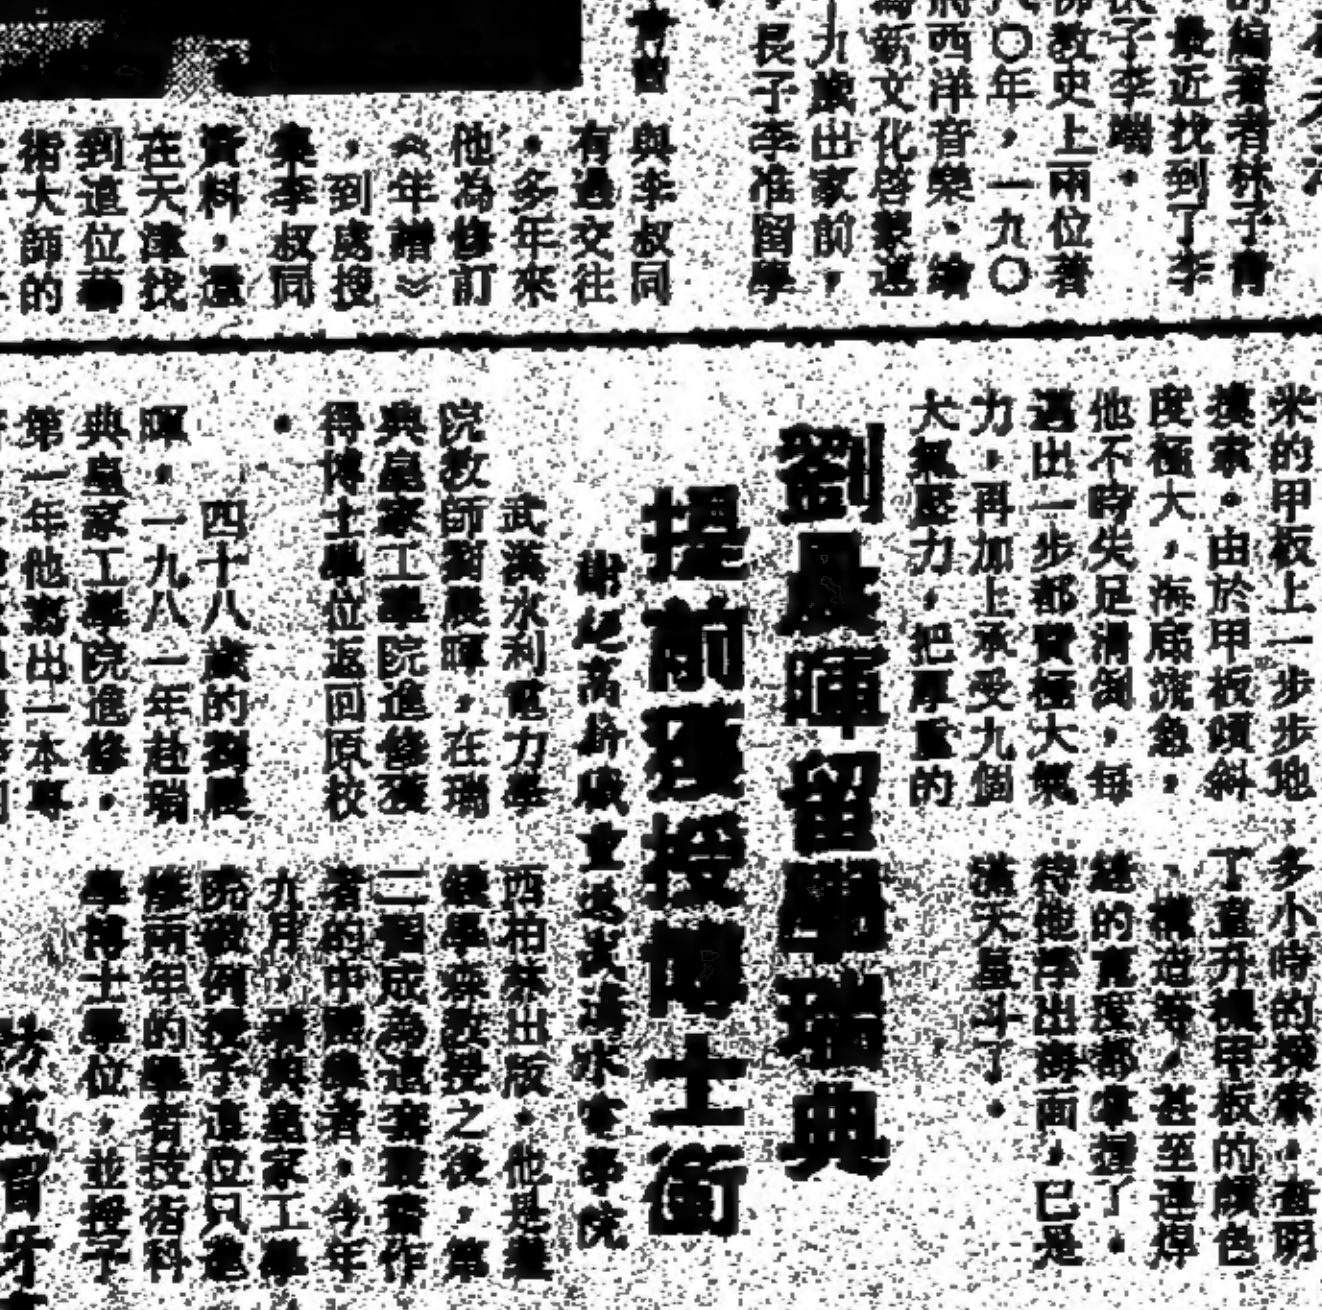 的編著者林子青
最近找到了李
子李端。
佛教史上兩位著
八〇年，一九〇
將西洋音樂、繪
為新文化啓蒙運
十九歲出家前，
，長子李准留學
與李叔同
有過交往
。多年來
他為修訂
《年譜》
，到處搜
集李叔同
資料，還
在天津找
到這位藝
術大師的
米的甲板上一步步地
摸索。由於甲板傾斜
度極大，海底流急，
他不時失足滑倒，每
邁出一步都費極大氣
力，再加上承受九個
大氣壓力，把厚重的
多小時的摸索，查明
了直升機甲板的顏色
、構造等，甚至連焊
縫的寬度都掌握了。
待他浮出海面，已是
滿天星斗了。
劉晨暉留學瑞典
提前獲授博士銜
謝絕高薪職重返武漢水電學院
武漢水利電力學
院教師劉晨暉，在瑞
典皇家工學院進修獲
得博士學位返回原校
。
四十八歲的劉晨
暉，一九八一年赴瑞
典皇家工學院進修，
第一年他寫出一本專
西柏林出版。他是繼
錢學森教授之後，第
二個成為這套叢書作
者的中國學者。今年
九月，瑞典皇家工學
院破例授予這位只進
修兩年的學者技術科
學博士學位，並授予